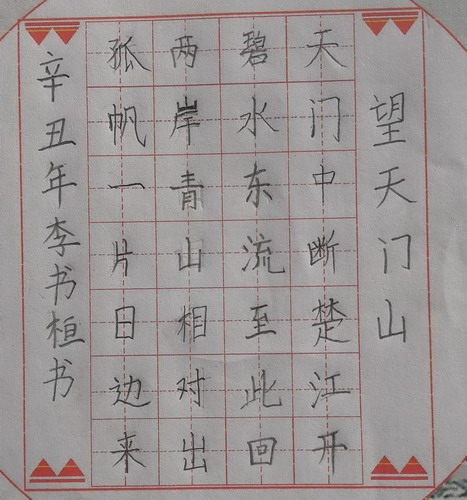 望天门山
天门中断楚江开
碧水东流至此回
两岸青山相对出
孤帆一片日边来
辛丑年李书桓书